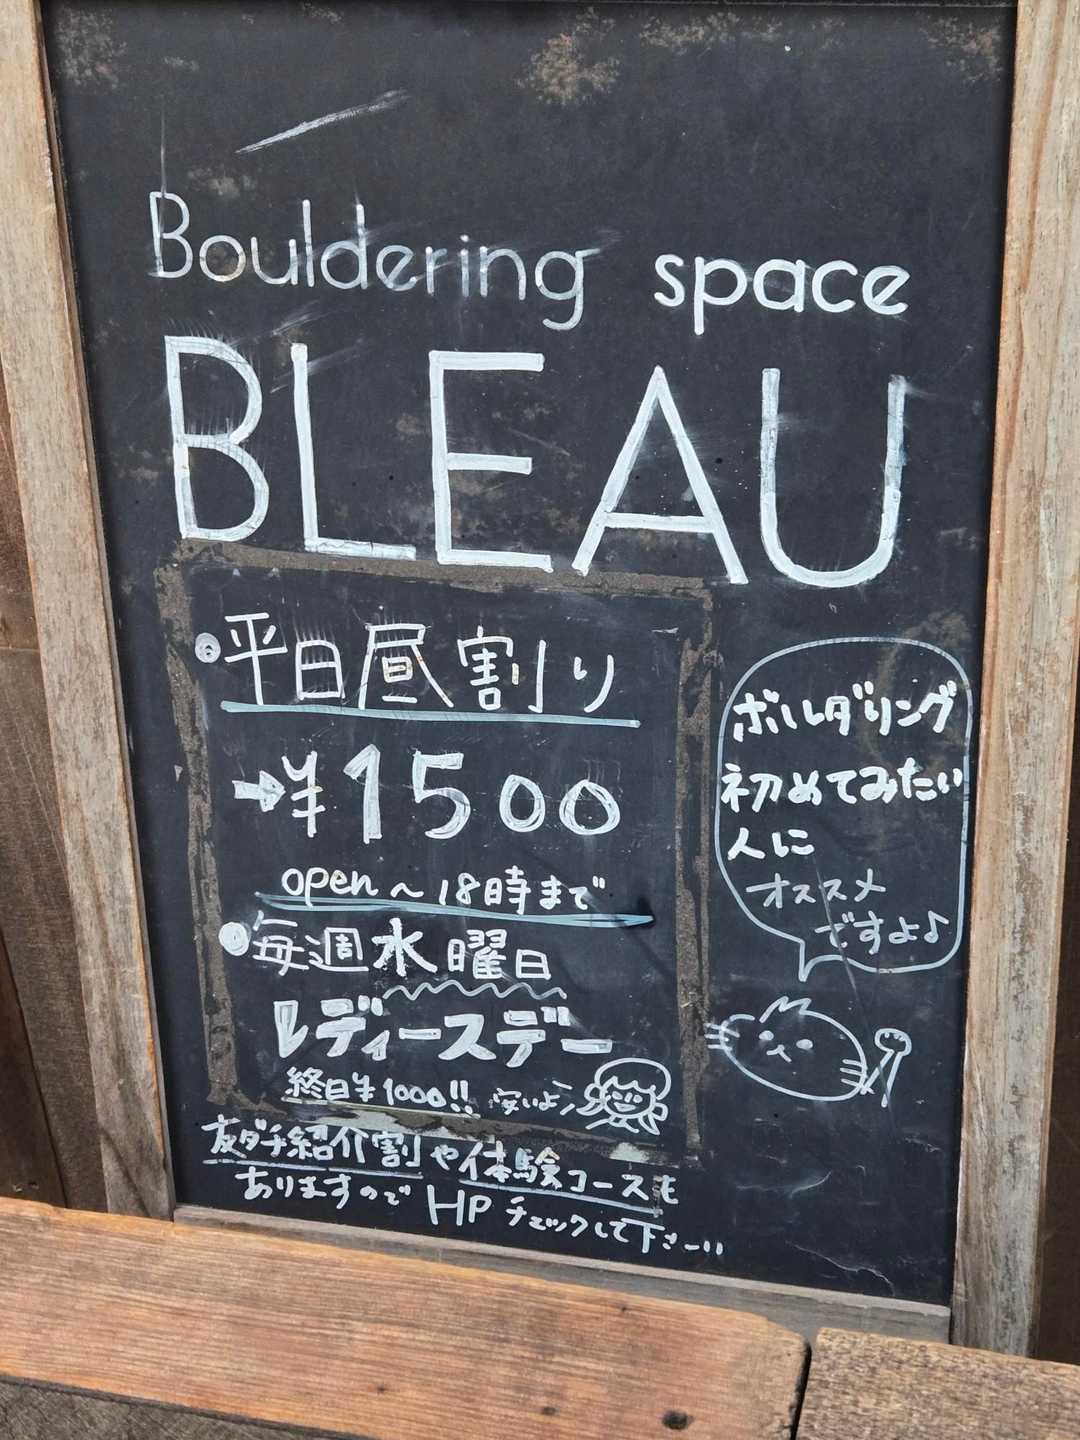 Bouldering space
BLEAU
平日昼割り
→¥1500
open～18時まで
毎週水曜日
レディースデー
終日¥1000!! 安いよ
友ダチ紹介割や体験コースも
ありますのでHPチェックして下さーい
ボルダリング
初めてみたい
人に
オススメ
ですよ♪